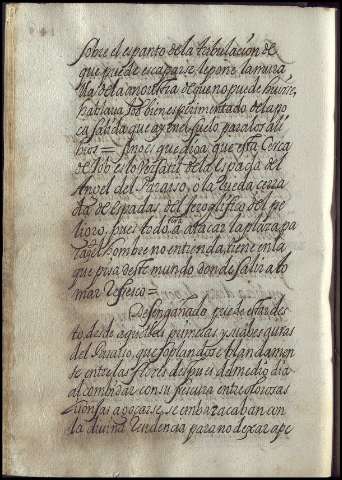 sobre el espanto de la tribulación de
que puede escaparse le pone la mura
lla de la de que no puede huirse,
hablaua Job bien esperimentado de la po
ca salida que ay en el suelo para los ali
bios = sino es que diga que esta Cerca
de Job es lo Versatil de la espada del
Angel del Paraiso, o la rueda cerra
da de espadas del geroglifico del pe
ligro, pues todo tira a atacar la plaza pa
ra que el hombre no entienda, tiene en la
que pisa deste mundo donde salir a to
mar refresco =
Desengañado puede estar des
to, desde aquellas primeras y suabes auras
del Paraiso, que soplandose blandamen
te entre las flores despues de medio dia
al combidar con su frescura entre glorosas
a gozarse, se embarazaban con
la diuina para no dexar ape